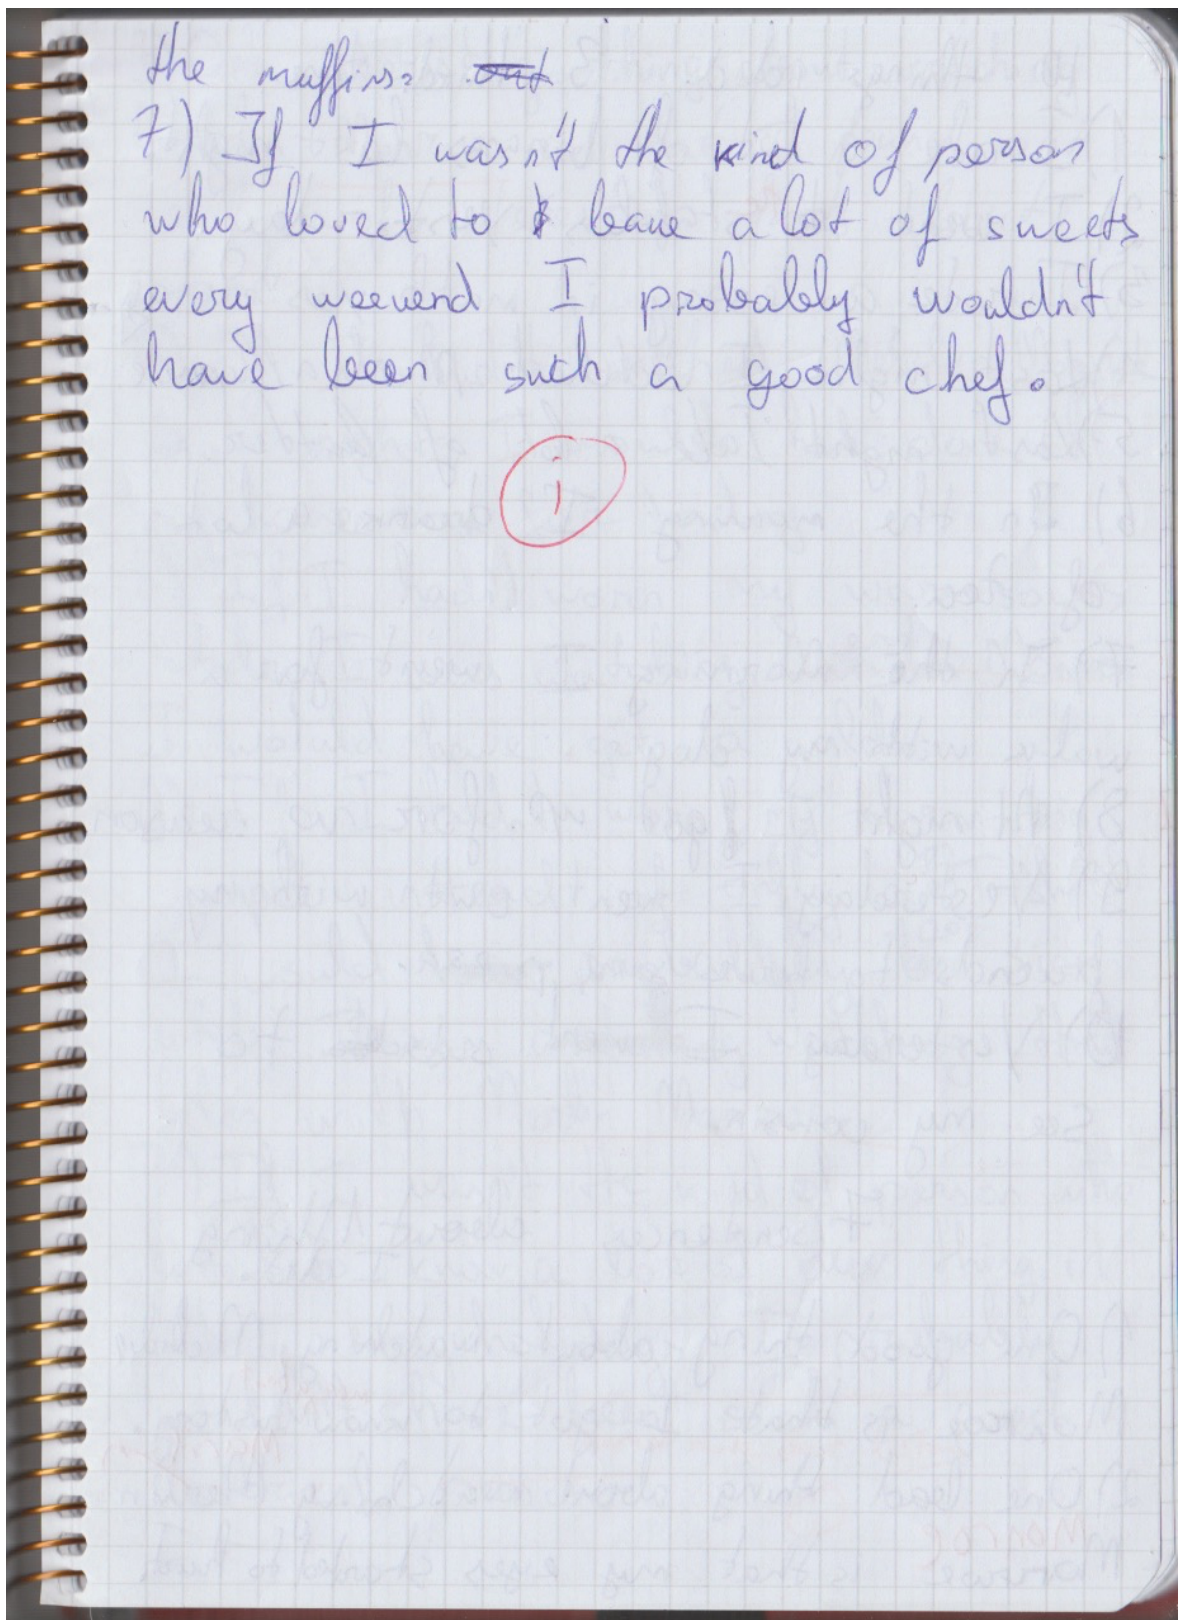 the muffins.
7) If I wasn't the kind of person
who loved to bake a lot of sweets
every weekend I probably wouldn't
have been such a good chef.
i